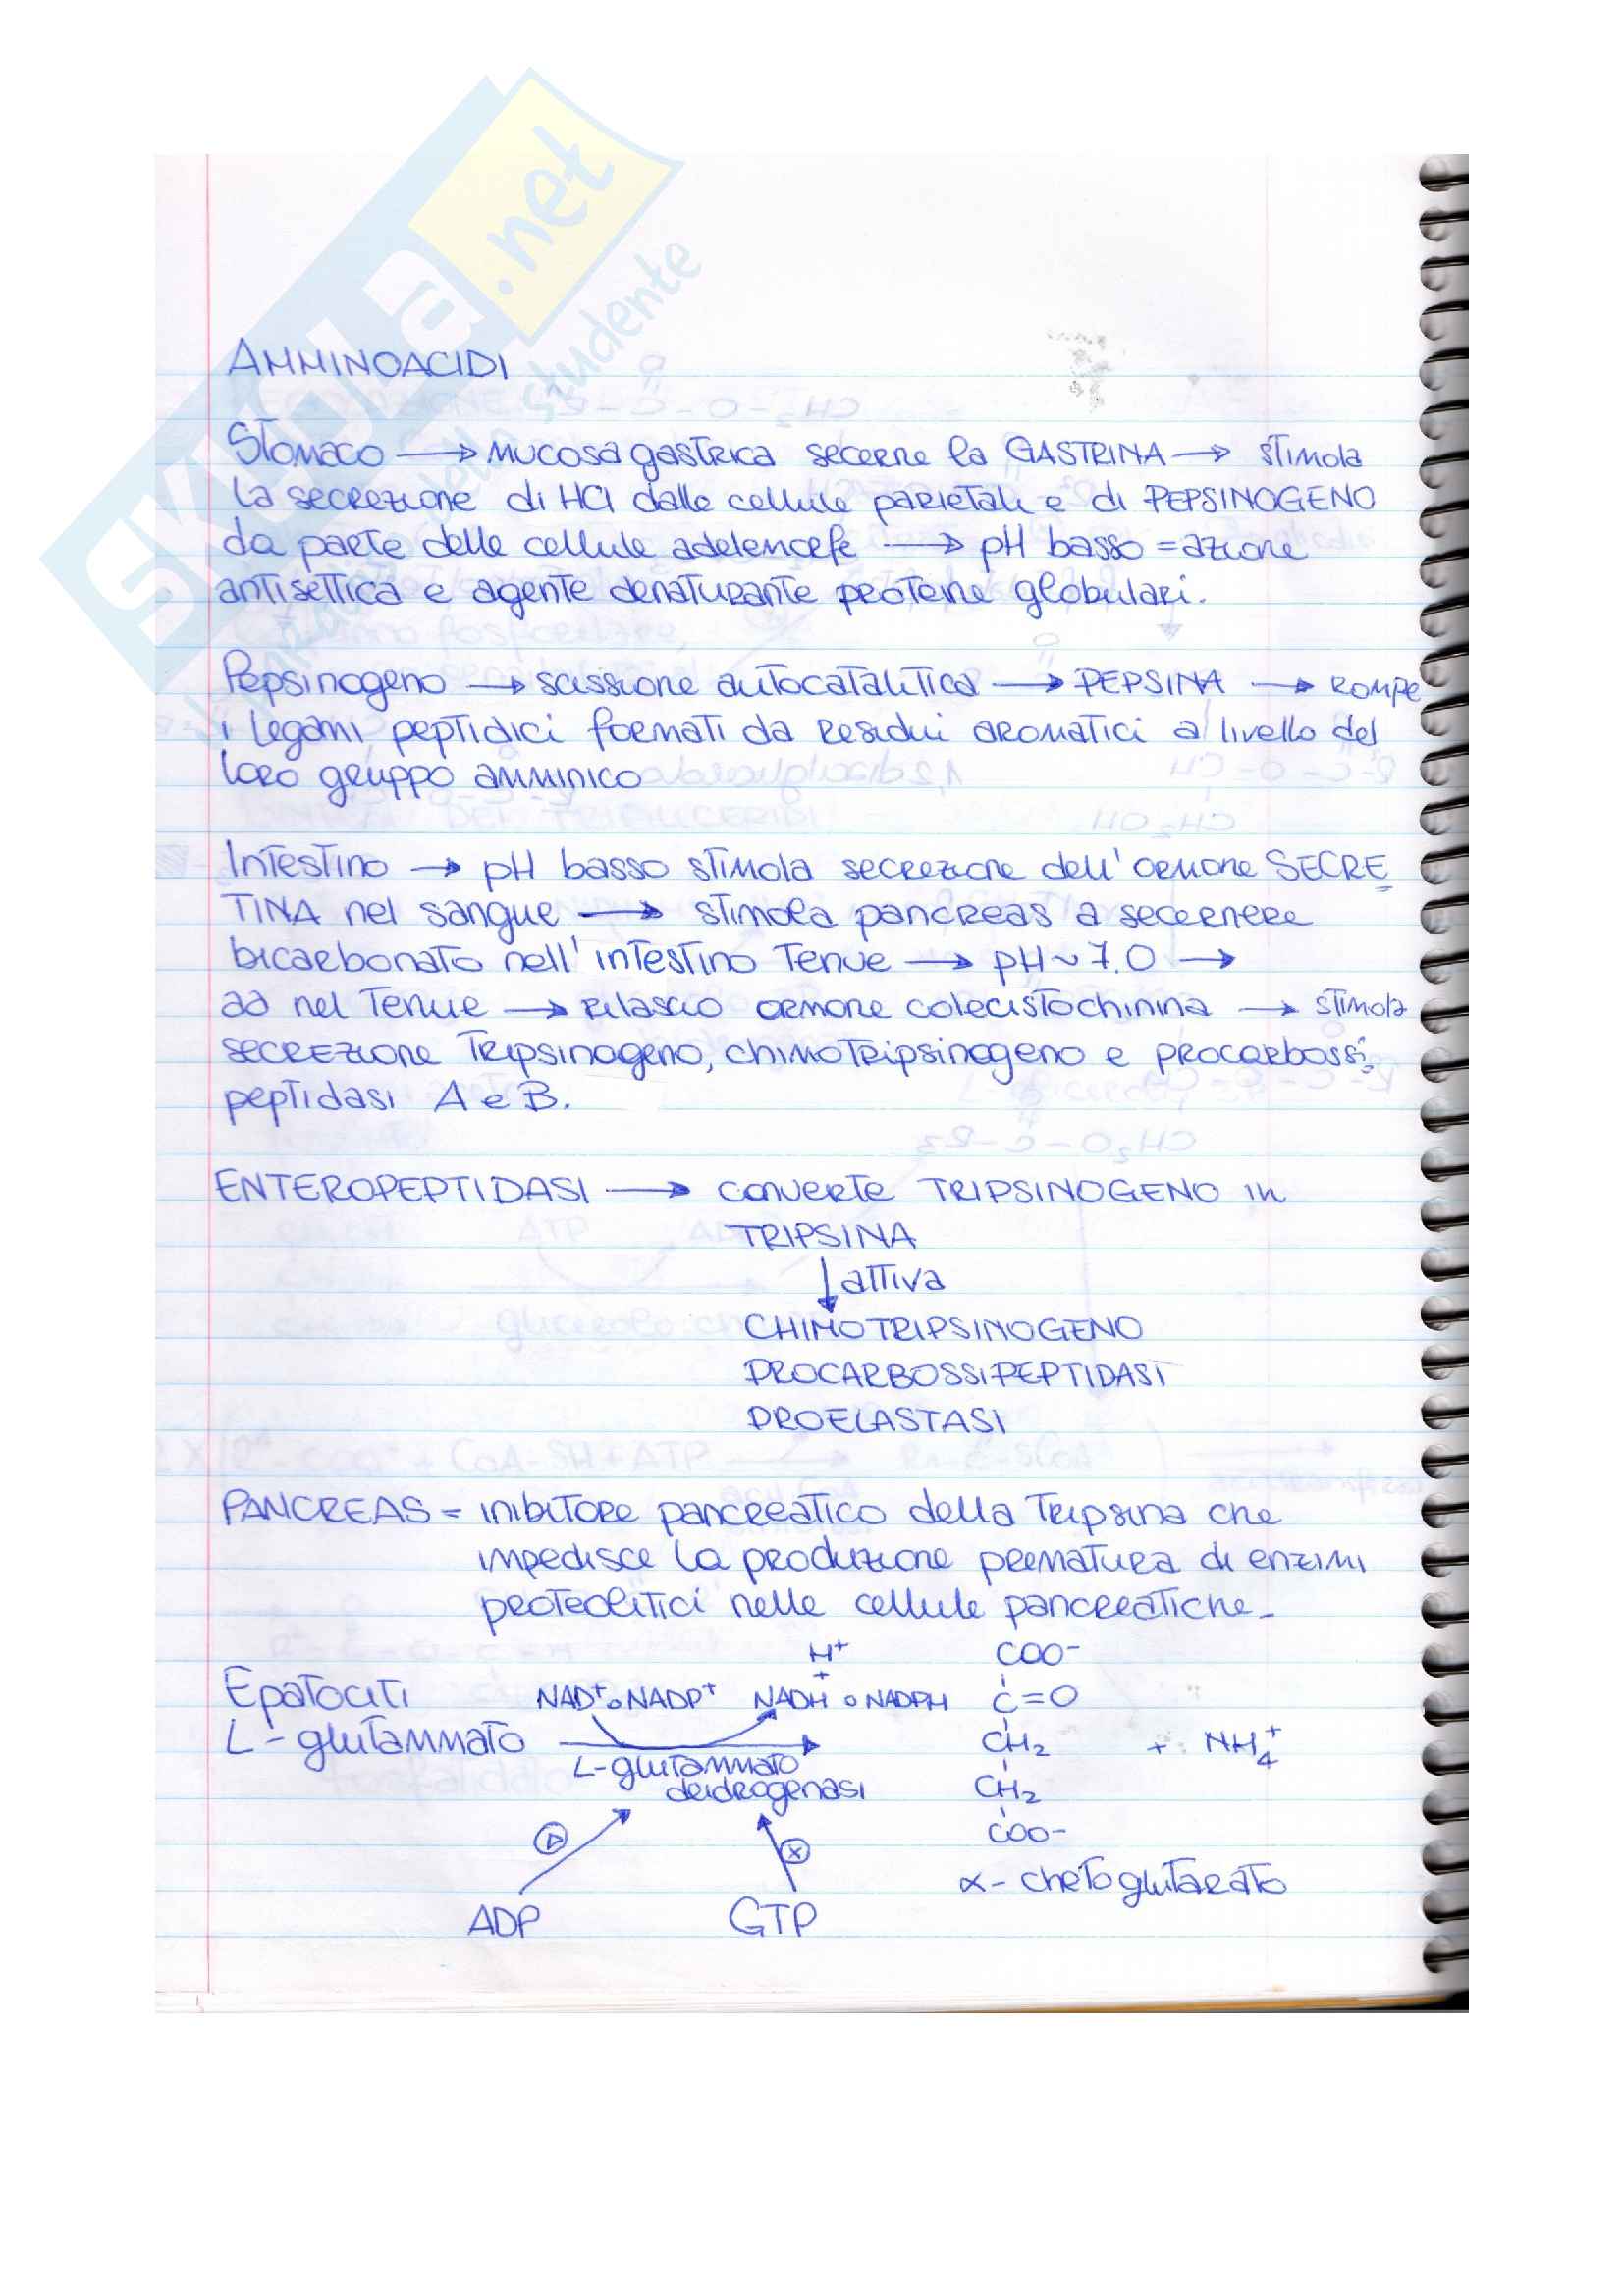 SKUOLA.net
AMMINOACIDI
Stomaco → mucosa gastrica secerne la GASTRINA → stimola
la secrezione di HCl dalle cellule parietali e di PEPSINOGENO
da parte delle cellule adelencefe → pH basso = azione
antisettica e agente denaturante proteine globulari.
Pepsinogeno → scissione autocatalitica → PEPSINA → rompe
i legami peptidici formati da residui aromatici a livello del
loro gruppo amminico
Intestino → pH basso stimola secrezione dell'ormone SECRE
TINA nel sangue → stimola pancreas a secernere
bicarbonato nell'intestino tenue → pH ~ 7.0 →
aa nel tenue → rilascio ormone colecistochinina → stimola
secrezione tripsinogeno, chimotripsinogeno e procarbossi
peptidasi A e B.
ENTEROPEPTIDASI → converte TRIPSINOGENO in
TRIPSINA
↓ attiva
CHIMOTRIPSINOGENO
PROCARBOSSIPEPTIDASI
PROELASTASI
PANCREAS = inibitore pancreatico della tripsina che
impedisce la produzione prematura di enzimi
proteolitici nelle cellule pancreatiche.
H+ COO-
+
Epatociti NAD+ o NADP+ NADH o NADPH C=O
L-glutammato → CH2 + NH4+
L-glutammato
deidrogenasi CH2
COO-
α-chetoglutarato
ADP GTP